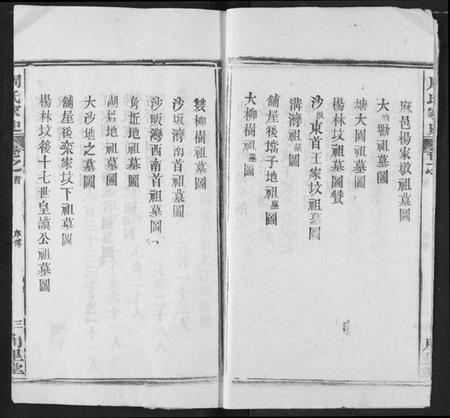 麻邑楊家墩祖墓圖
大墈祖墓圖
塘大園祖墓圖
楊林坟祖墓圖贊
沙坂東首王家坟祖墓圖
溝灣祖墓圖
舖屋後塆子地祖墓圖
大柳樹祖墓圖
雙柳樹祖墓圖
沙坂灣南首祖墓圖
沙畈灣西南首祖墓圖
地祖墓圖
湖居地祖墓圖
大沙地之墓圖
舖屋後栾家坟下祖墓圖
楊林坟後十七世皇謨公祖墓圖
周氏家史
卷之首
三